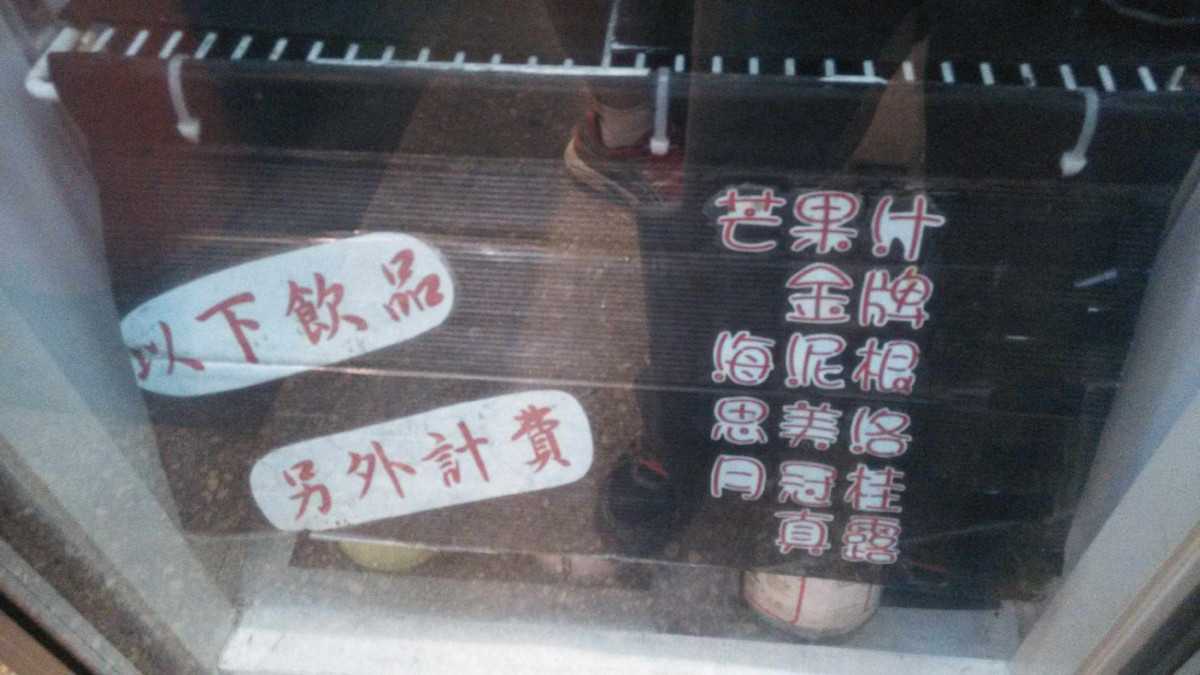 以下飲品
另外計費
芒果汁
金牌
海尼根
思美洛
月冠桂
真露